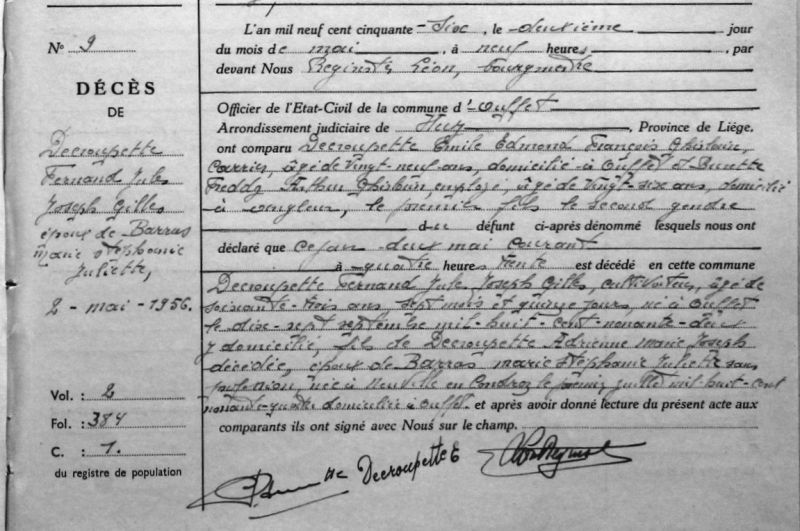 N° 9
DÉCÈS
DE
Decroupette
Fernand Jules
Joseph Gilles
époux de Barras
Marie Stéphanie
Juliette,
2 - mai - 1956.
Vol. : 2
Fol. : 384
C. : 1.
du registre de population
L'an mil neuf cent cinquante - six, le deuxième jour
du mois de mai, à neuf heures, par
devant Nous Léon, bourgmestre
Officier de l'Etat-Civil de la commune d'Ouffet
Arrondissement judiciaire de Huy, Province de Liège,
ont comparu Decroupette Emile Edmond François Ghislain,
âgé de vingt-neuf ans, domicilié à Ouffet et
Freddy Arthur Ghislain, employé, âgé de vingt-six ans, domicilié
à Angleur, le premier fils le second gendre
du défunt ci-après dénommé lesquels nous ont
déclaré que ce jour deux mai courant
à quatre heures trente est décédé en cette commune
Decroupette Fernand Jules Joseph Gilles, cultivateur, âgé de
soixante-trois ans, sept mois et quinze jours, né à Ouffet
le dix-sept septembre mil-huit-cent-nonante-deux
y domicilié, fils de Decroupette Adrienne Marie Joseph
décédée, époux de Barras Marie Stéphanie Juliette sans
profession, née à Neuville en Condroz le premier juillet mil huit-cent
nonante-quatre domiciliée à Ouffet. et après avoir donné lecture du présent acte aux
comparants ils ont signé avec Nous sur le champ.
Decroupette E